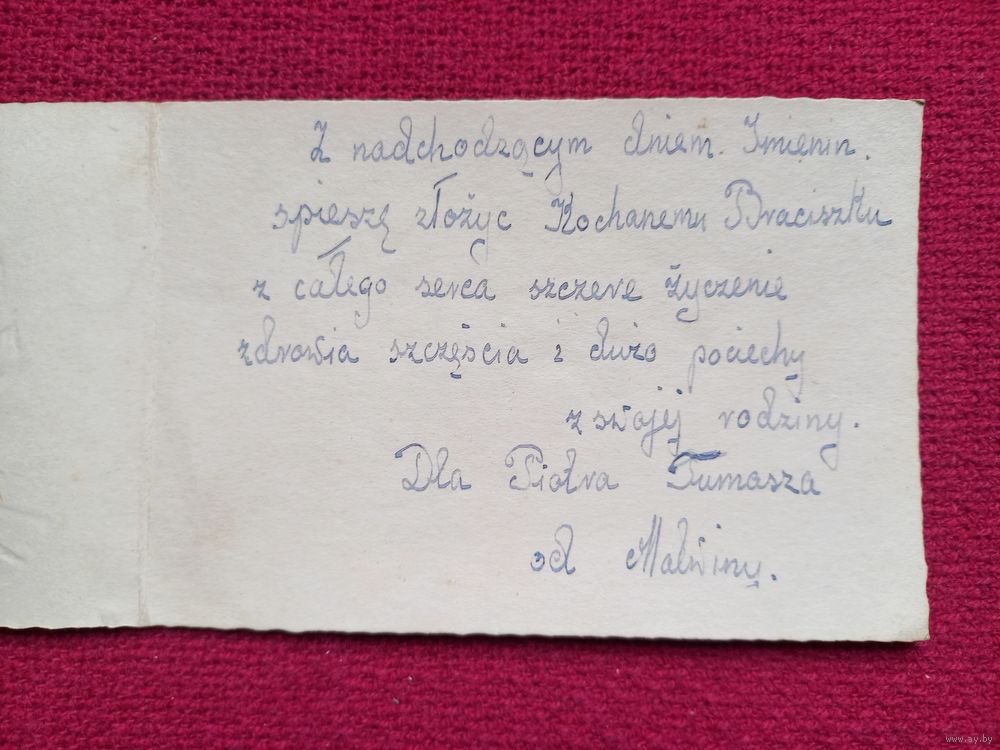 Z nadchodzącym dniem. Imienin.
spieszę złożyc Kochanemu Braciszku
z całego serca szczere życzenie
zdrowia szczęścia i dużo pociechy
z swojej rodziny.
Dla Piotra Tumasza
od Malwiny.
www.ay.by